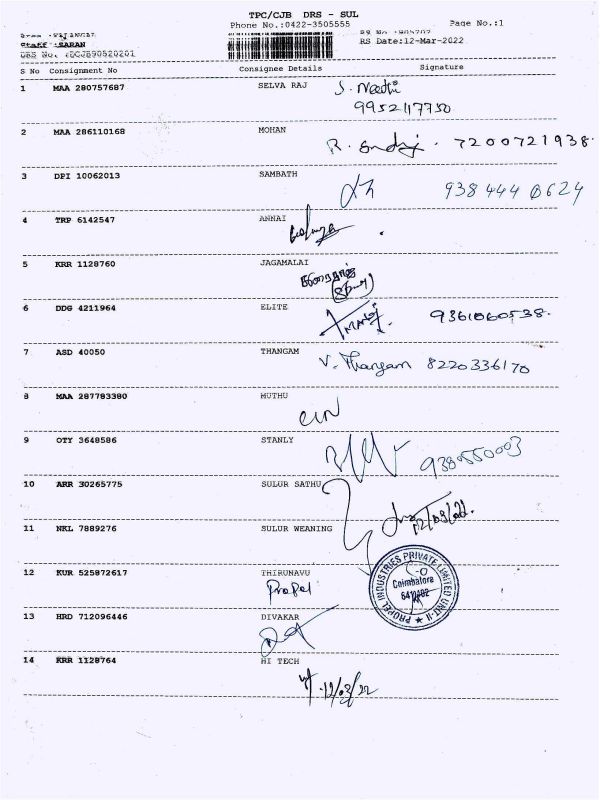 TPC/CJB DRS - SUL
Phone No.:0422-3505555 Page No.:1
Staff :SARAN RS Date:12-Mar-2022
DRS No. :DCJB90520201
S No Consignment No Consignee Details Signature
1 MAA 280757687 SELVA RAJ
9952117750
2 MAA 286110168 MOHAN 7200721938
3 DPI 10062013 SAMBATH 938 444 0624
4 TRP 6142547 ANNAI
5 KRR 1128760 JAGAMALAI
6 DDG 4211964 ELITE 9361060538
7 ASD 40050 THANGAM V. Thangam 8220336170
8 MAA 287783380 MUTHU
9 OTY 3648586 STANLY
10 ARR 30265775 SULUR SATHU
12/03/22.
11 NKL 7889276 SULUR WEANING
12 KUR 525872617 THIRUNAVU
Propel
PROPEL INDUSTRIES PRIVATE LIMITED UNIT-II
Coimbatore
13 HRD 712096446 DIVAKAR
14 KRR 1128764 HI TECH
12/03/22